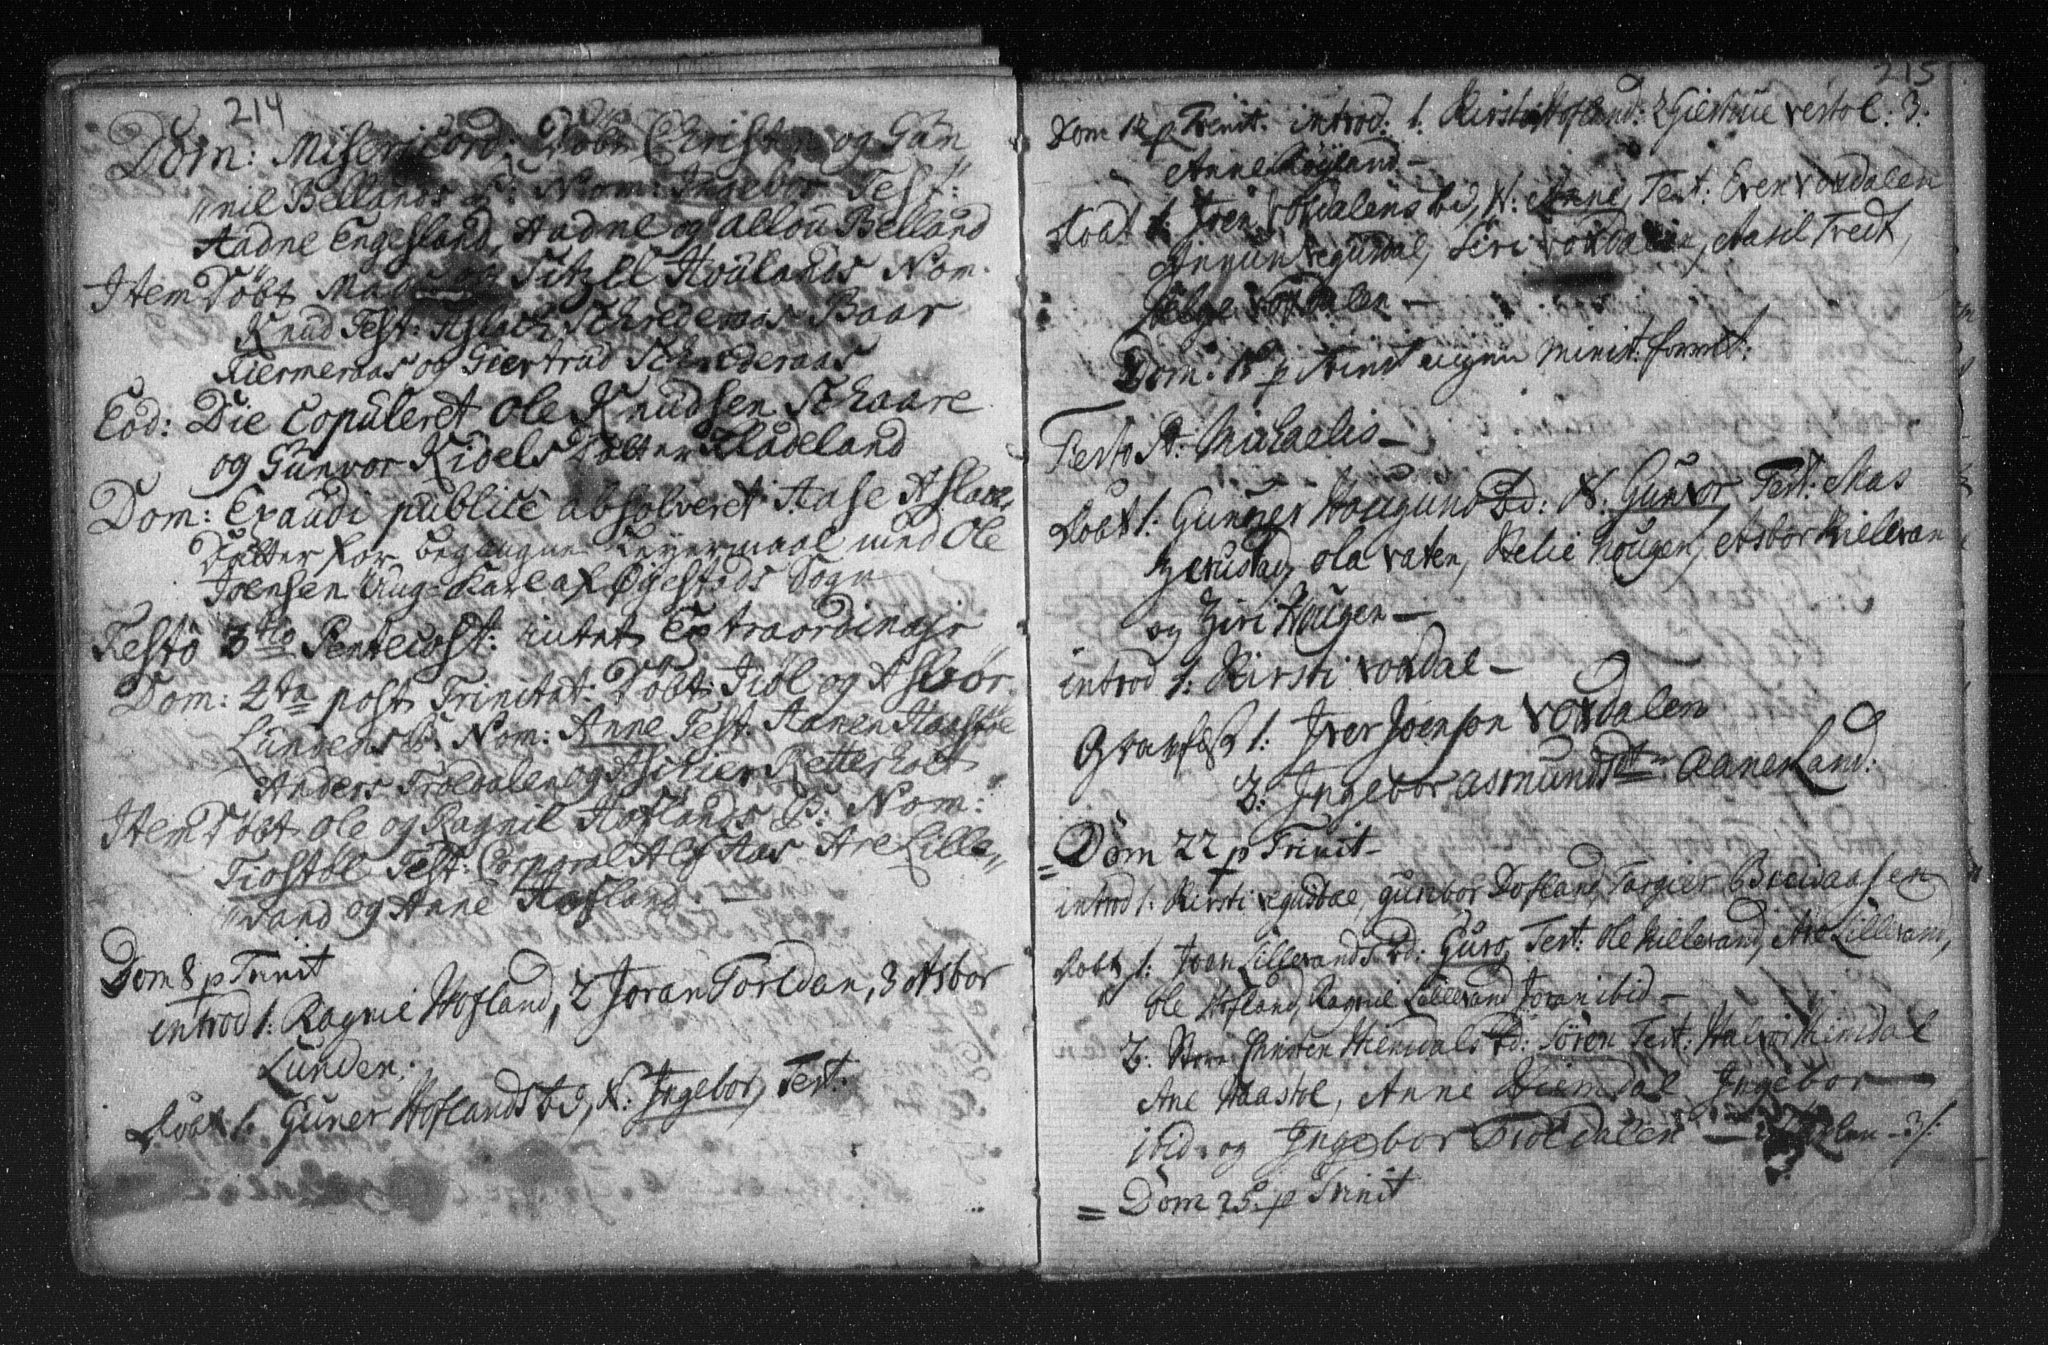 214
Dom: Misericord: Döbt Christen og Gun
"nil Bellands B: Nom: Ingebor Test:
Aadne Engesland, Aadne og allou Belland
Item Döbt Mads og Sitzel Houlands Nom.
Knud Test: Aslach Schrederaas Baar
Kiermeraas og Giertrud Schrederaas
Eod: Die Copuleret Ole Knudsen Schaare
og Gunvor Kidels Datter Kladeland
Dom: Exaudi publice absolveret Aase Aslacs
Datter for begangne Leyermaal med Ole
Joensen Ung-Karl af Øyestads Sogn
Festo 3tio Pentecost: Extraordinair
Dom: 4ta post Trinitat: Döbt Tiöl og Asbör
Lundens B: Nom: Anne Test: Aanen Haastöl
Anders Troldalen og Retterholt
Item Döbt Ole og Ragnil Hoflands B: Nom:
Tiostöl Test: Corporal Alf Aas Are Lille"
"vand og Anne Hofland. —
Dom 8 p Trinit
introd 1: Ragnil Hofland, 2 Joran Torldan, 3 Asbor
Lunden;
Döbt 1. Guner Hoflands bd, N: Ingebor, Test:
215
Dom 12 p Trinit: introd: 1: Kirsti Hofland: 2 Giertrue Vestöl: 3:
Anne Röyland —
Döbt 1: Iver Voxdalens bd, N: Anne, Test: Even Voxdalen
Siri Voxdalen, Aasil Tveit,
Helge Voxdalen —
Dom: 15 p Trinit minist: forret:
Festo St: Michaelis —
Döbt 1: Gunner Hougens Bd: N: Gunvor Test: Mas
Ola vaten, Helie Hougen, Asbor Lillevan
og Ziri Hougen —
introd 1: Kirsti Voxdal —
Gravfest 1: Iver Joenson Voxdalen
2: Ingebor Asmundsdtr Aaneland:
= Dom 22 p Trinit —
introd 1: Kirsti Egusdal, Gunbor Hofland, Targier Breivaasen
Döbt 1: Joen Lillevands bd: Guro, Test: Ole Lillevand, Are Lillevand,
Ole Hofland, Ragnil Lillevand Joran ibid —
2: Hiemdals bd: Sören Test: Halvor Hiemdal
Ane Haastöl, Anne Hiemdal Ingebor —
ibid. og Ingebor Troldalen —
= Dom 25. p Trinit